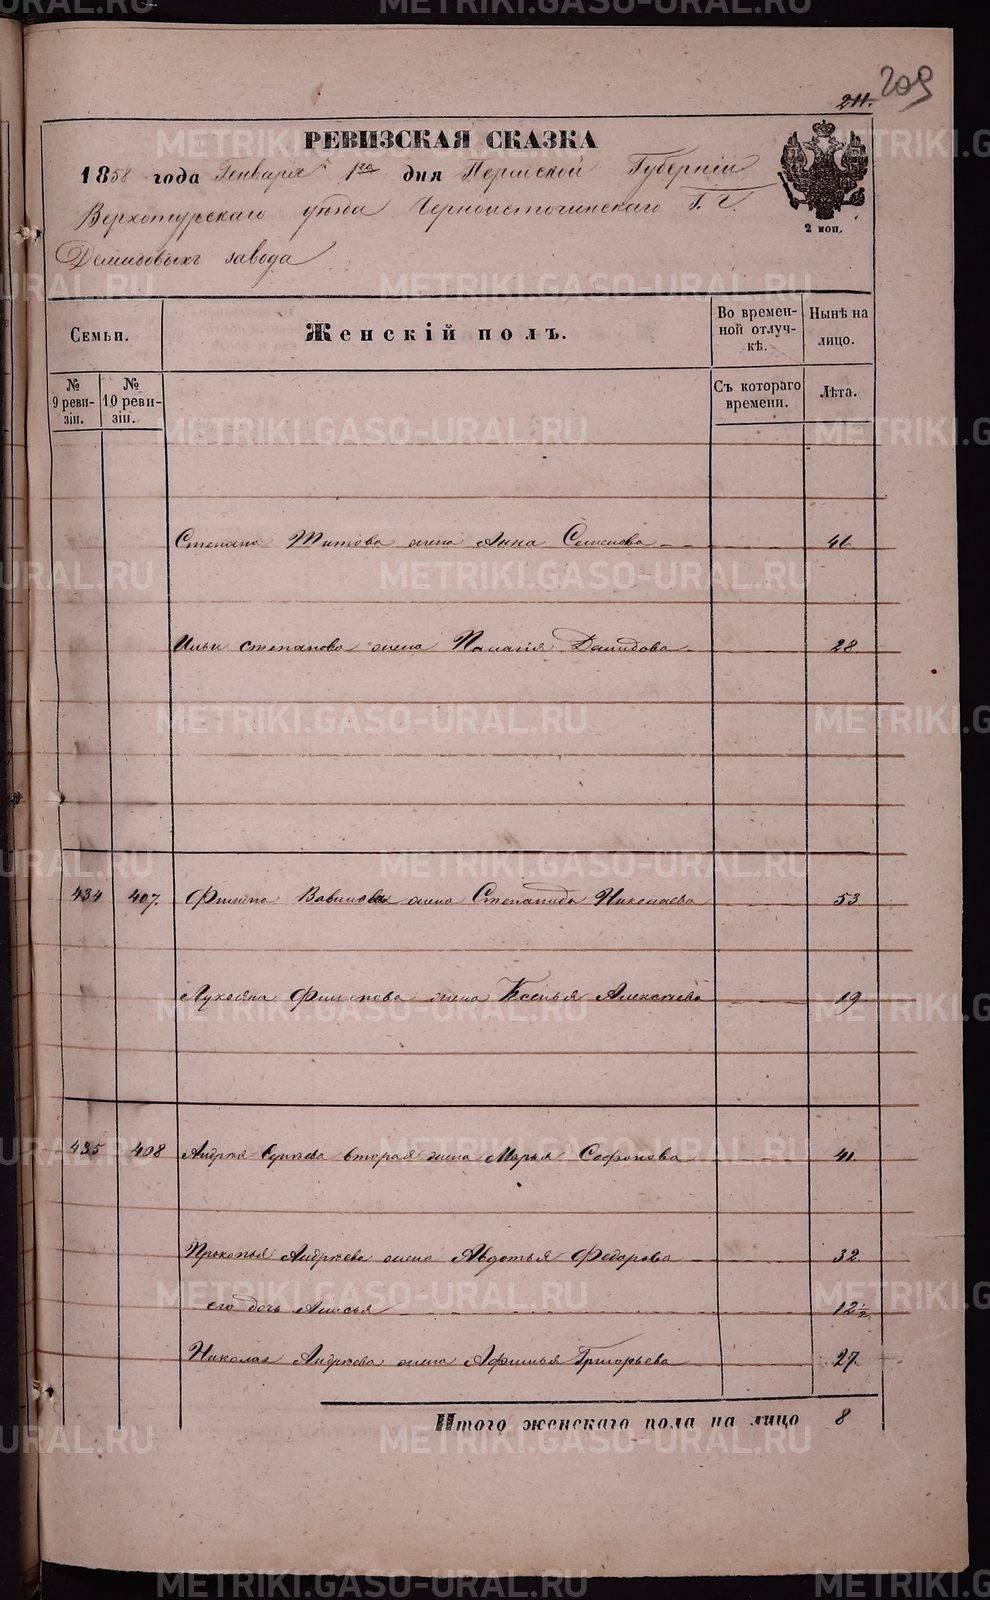 209
211.
РЕВИЗСКАЯ СКАЗКА
1858 года Генваря 1го дня Пермской Губернiи
Верхотурскаго уѣзда Черноисточинскаго Г. Г.
Демидовыхъ завода
2 коп.
Семьи.
Женскiй полъ.
Во времен-
ной отлуч-
кѣ.
Нынѣ на
лицо.
№
9 реви-
зiи.
№
10 реви-
зiи.
Съ котораго
времени.
Лѣта.
Степана Титова жена Анна Семенова 41
Ильи степанова жена Палагiя Давидова 28
434 407. Филипа Вавилова жена Степанида Николаева 53
Лукояна Филипова жена Ксенья Алексѣева 19
435 408 Андрея вторая жена Марья Софонова 41
Прокопья Андрѣева жена Авдотья Федорова 32
его дочь Анисья 12½
Николая Андрѣева жена Афимья Григорьева 27
Итого женскаго пола на лицо 8
METRIKI.GASO-URAL.RU